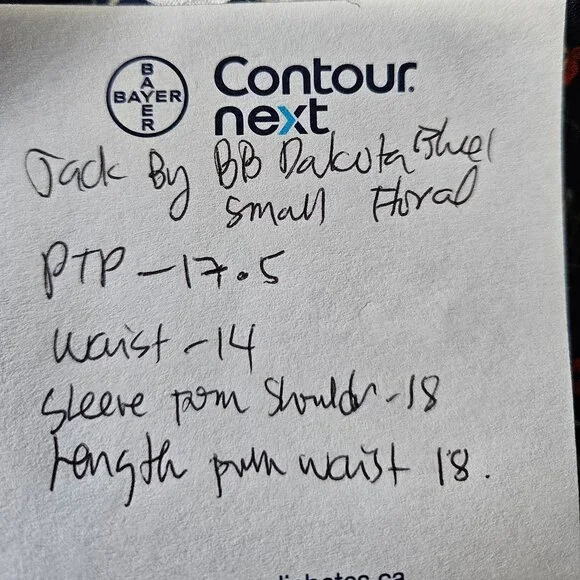 BAYER
BAYER
Contour
next
Jack By BB Dakota Blue
small Floral
PTP - 17.5
waist - 14
Sleeve from Shouldr - 18
Length from waist 18.